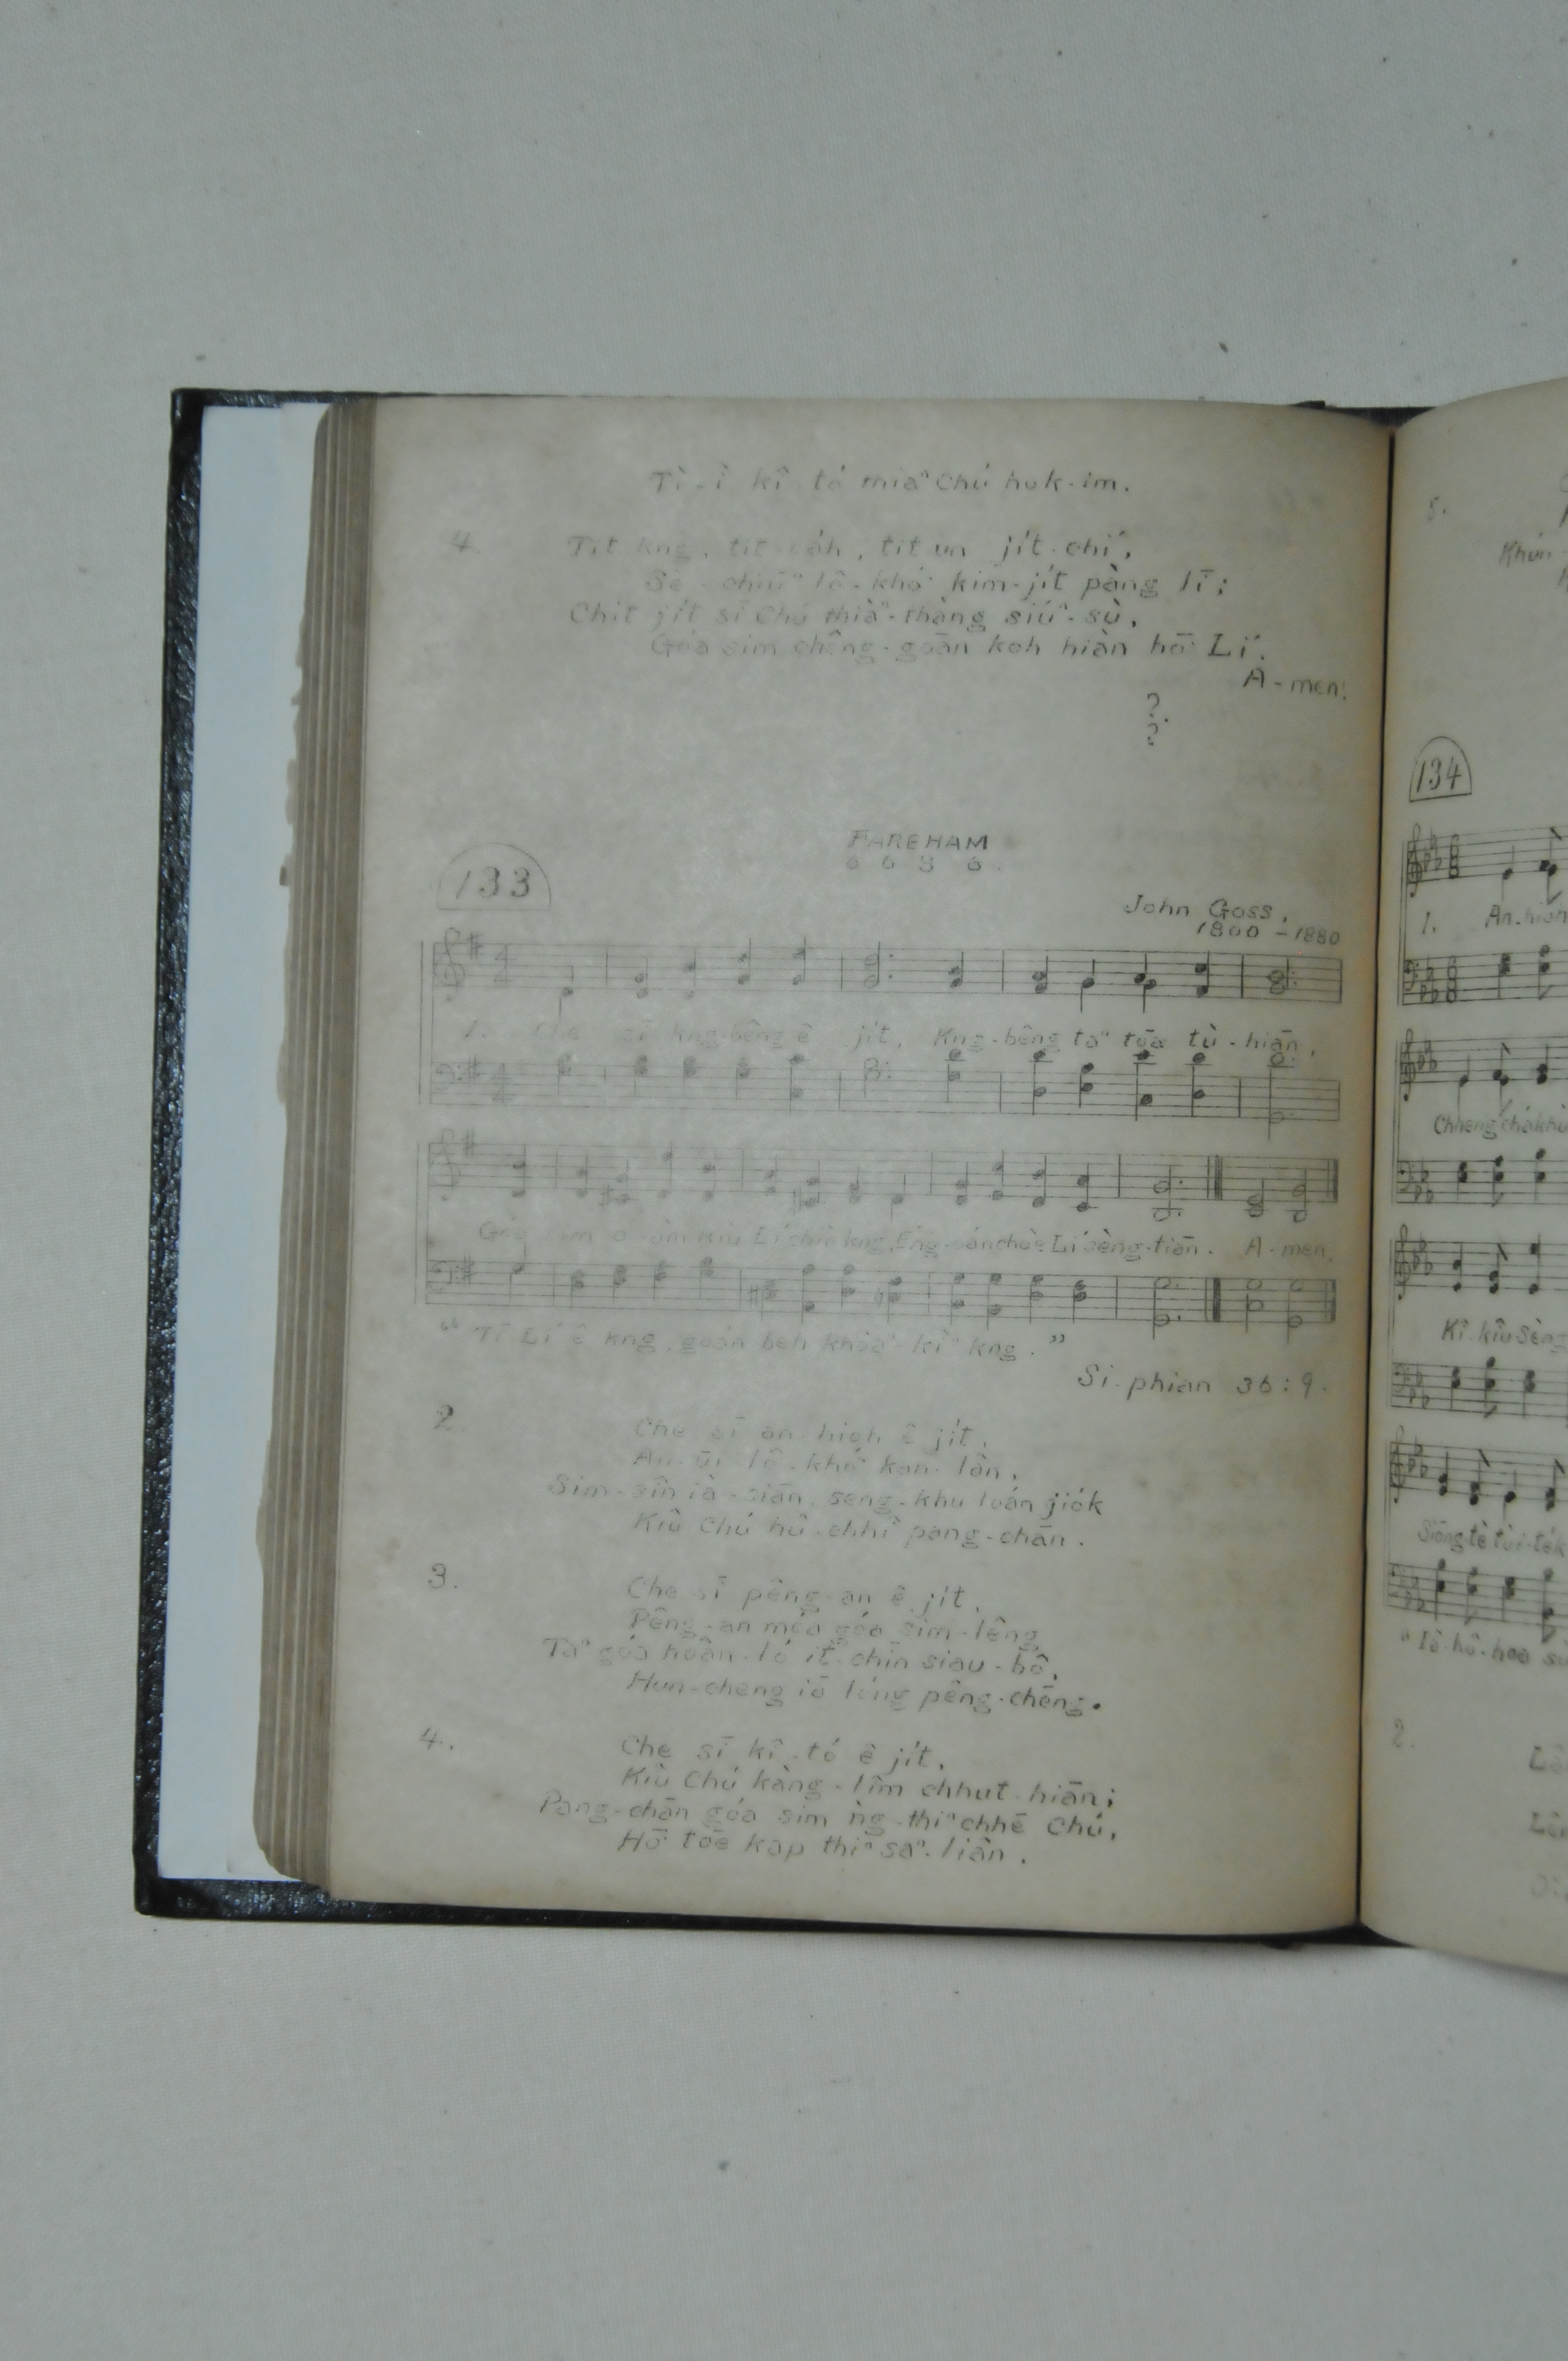 Tì-ì kî-tó thiaⁿ Chú huk-im.
4. Tit kng, tit , tit un jı̍t-chí,
lô-khó͘ kim-jı̍t pàng lī;
Chit jı̍t sī Chú thiàⁿ-thàng siúⁿ-sù,
Góa sim chêng-goān koh hiàn hō͘ Lí.
A-men.
?
?
133
FAREHAM
6 6 8 6.
John Goss,
1800 - 1880
1. Che sī kng-bêng ê jı̍t, Kng-bêng taⁿ tōa tù-hiān,
Góa sim o-àm kiû Lí chiò kng, Lí sèng-tiān. A-men.
"Tī Lí ê kng, goán beh khòaⁿ-kìⁿ kng."
Si-phian 36:9.
2. Che sī an-hioh ê jı̍t,
An-ùi lô-khó͘ kan-lân,
Sim-sîn ià-siān, seng-khu loán-jio̍k
Kiû Chú hû-chhî pang-chān.
3. Che sī pêng-an ê jı̍t,
Pêng-an móa góa sim-lêng
Taⁿ góa hoân-ló it-chīn siau-bô,
Hun-cheng iā lóng pêng-chēng.
4. Che sī kî-tó ê jı̍t,
Kiû Chú kàng-lîm chhut-hiān;
Pang-chān góa sim ǹg-thiⁿ chhē Chú,
Hō͘ tōe kap thiⁿ saⁿ-liân.
5.
134
1. An-hioh
Chheng-chá khì
Kî-kiû Sèng
Siōng-tè tùi-te̍k
"Iâ-hô-hoa
2.